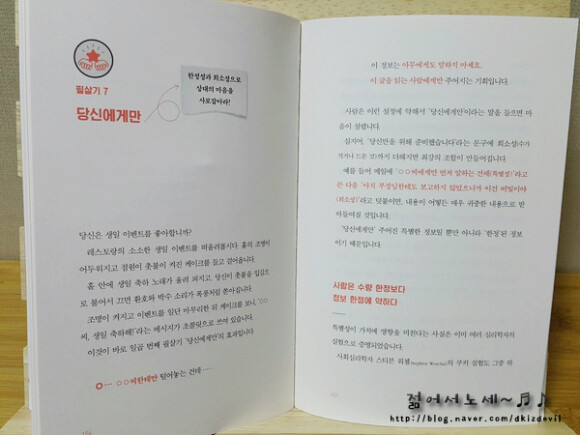 필살기 7
당신에게만
한정성과 희소성으로
상대의 마음을
사로잡아라!
당신은 생일 이벤트를 좋아합니까?
레스토랑의 소소한 생일 이벤트를 떠올려봅시다. 홀의 조명이
어두워지고 점원이 촛불이 켜진 케이크를 들고 걸어옵니다.
홀 안에 생일 축하 노래가 울려 퍼지고, 당신이 촛불을 입김으
로 불어서 끄면 환호와 박수 소리가 폭풍처럼 쏟아집니다.
조명이 켜지고 이벤트를 일단 마무리한 뒤 케이크를 보니, '○○
씨, 생일 축하해!'라는 메시지가 초콜릿으로 쓰여 있습니다.
이것이 바로 일곱 번째 필살기 '당신에게만'의 효과입니다.
○○씨한테만 털어놓는 건데……
이 정보는 아무에게도 말하지 마세요.
이 글을 읽는 사람에게만 주어지는 기회입니다.
사람은 이런 설정에 약해서 '당신에게만'이라는 말을 들으면 마
음이 설렙니다.
심지어, '당신만을 위해 준비했습니다'라는 문구에 희소성(수가
적거나 드문 것)까지 더해지면 최강의 조합이 만들어집니다.
예를 들어 메일에 '○○씨에게만 먼저 말하는 건데(특별성)'라고
쓴 다음 '아직 부장님한테도 보고하지 않았으니까 이건 비밀이야
(희소성)'라고 덧붙이면, 내용이 어떻든 매우 귀중한 내용으로 받
아들여질 것입니다.
'당신에게만' 주어진 특별한 정보일 뿐만 아니라 '한정'된 정보
이기 때문입니다.
사람은 수량 한정보다
정보 한정에 약하다
특별성이 가치에 영향을 미친다는 사실은 이미 여러 심리학자의
실험으로 증명되었습니다.
사회심리학자 스티븐 워첼(Stephen Worchel)의 쿠키 실험도 그중 하
젊어서노세~♬♪
http://blog.naver.com/dkizdevil